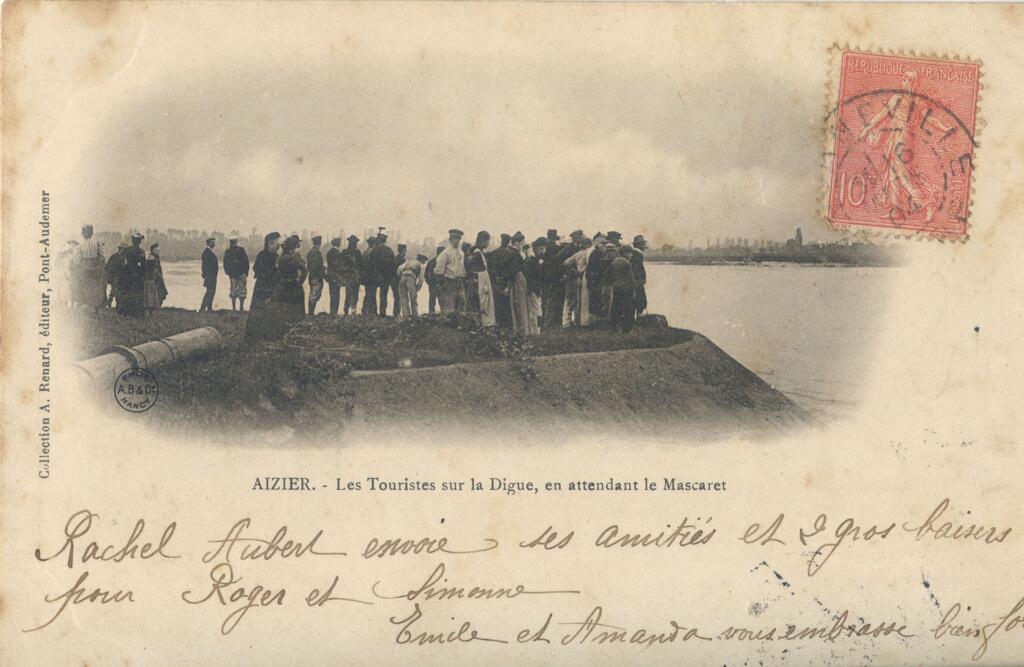 RÉPUBLIQUE FRANÇAISE
10
Collection A. Renard, éditeur, Pont-Audemer
A.B & Cie
NANCY
AIZIER. - Les Touristes sur la Digue, en attendant le Mascaret
Rachel Aubert envoie ses amitiés et 2 gros baisers
pour Roger et Simonne
Emile et Amanda vous embrasse bien